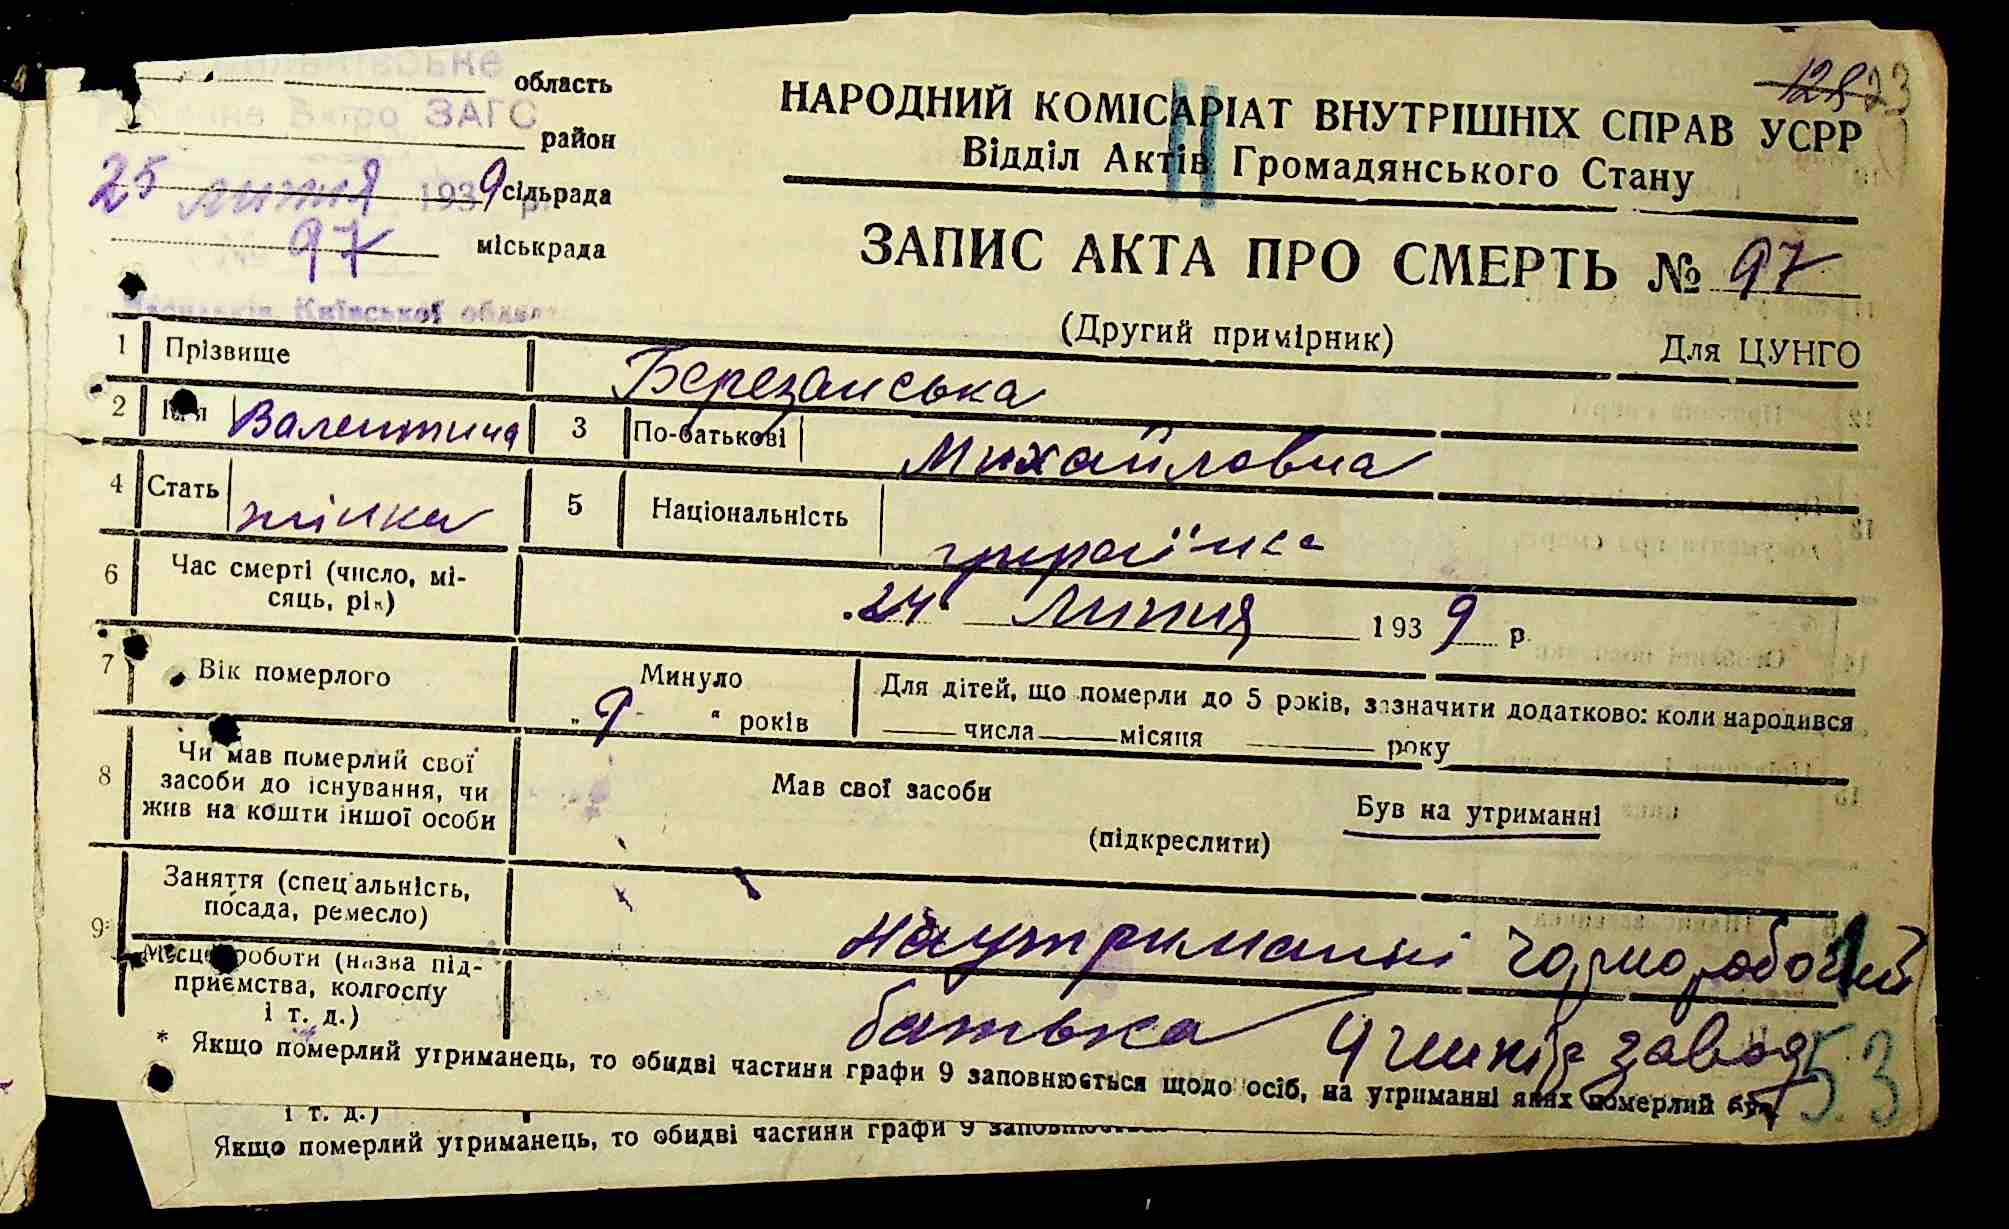 область
Бюро ЗАГС
район
25 липня 1939 р.
сільрада
97
міськрада
Київської
128 23
НАРОДНИЙ КОМІСАРІАТ ВНУТРІШНІХ СПРАВ УСРР
Відділ Актів Громадянського Стану
ЗАПИС АКТА ПРО СМЕРТЬ № 97
(Другий примірник)
Для ЦУНГО
1 Прізвище Березанська
2 Ім'я Валентина 3 По-батькові Михайловна
4 Стать жінка 5 Національність
6 Час смерті (число, мі-
сяць, рік)
24 липня 1939 р.
7 Вік померлого Минуло
„ 9 “ років
Для дітей, що померли до 5 років, зазначити додатково: коли народився
числа місяця року
8 Чи мав померлий свої
засоби до існування, чи
жив на кошти іншої особи
Мав свої засоби Був на утриманні
(підкреслити)
9 Заняття (спеціальність,
посада, ремесло)
на утриманні чорноробочий
Місце роботи (назва під-
приємства, колгоспу
і т. д.)
батька завод
53
* Якщо померлий утриманець, то обидві частини графи 9 заповнюється щодо осіб, на утриманні яких померлий був.
і т. д.)
Якщо померлий утриманець, то обидві частини графи 9